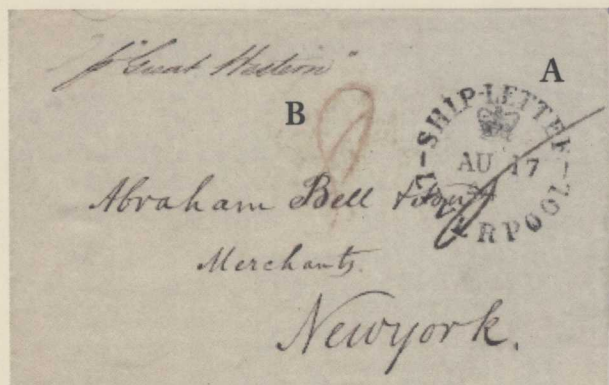 p "Great Western"
A
B
SHIP-LETTER
AU 17
LIVERPOOL
8
Abraham Bell & Son
Merchants.
Newyork.